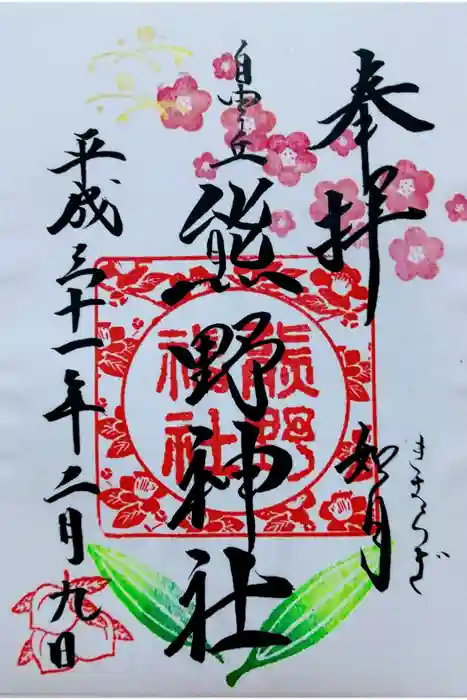 奉拝
如月
きさらぎ
自由が丘
熊野神社
熊野
神社
平成三十一年二月九日